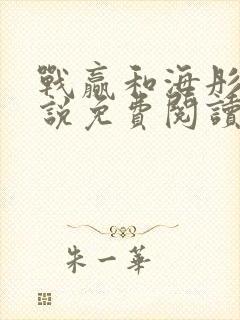 戰贏和海彤
說免費閱讀
朱一華